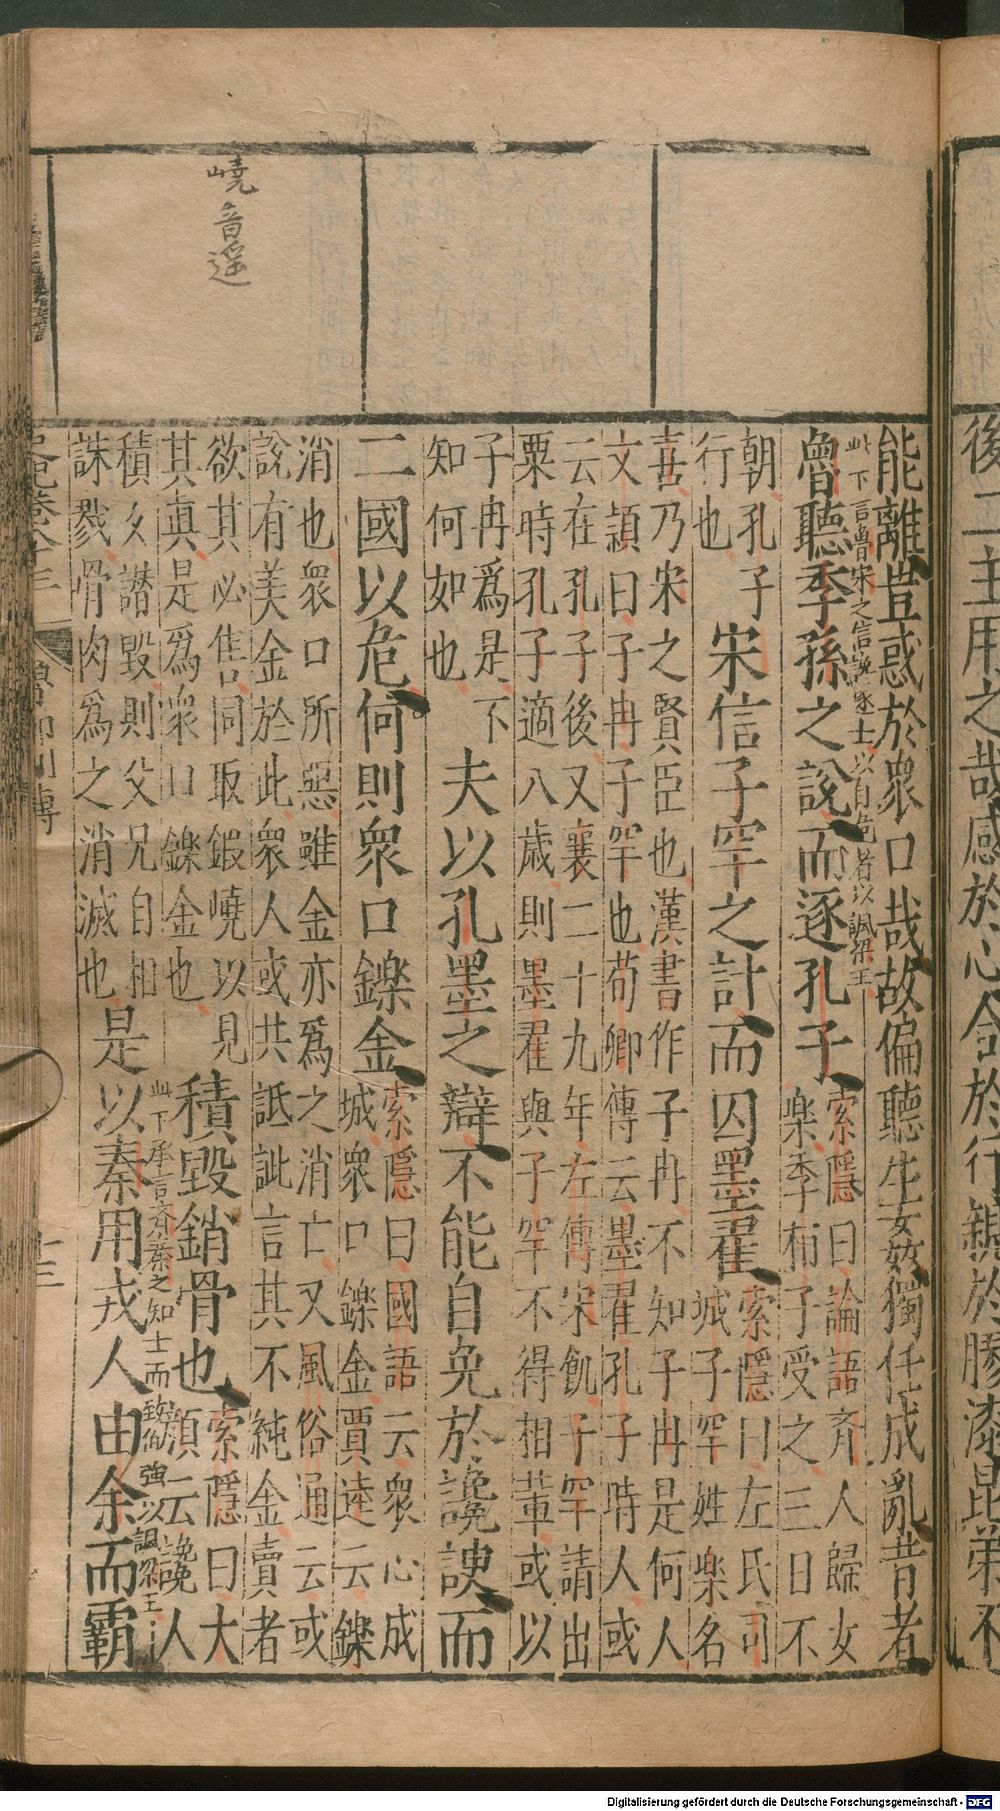 後二主用之哉感於心合於行親於膠漆昆弟不
能離豈惑於衆口哉故偏聽生姦獨任成亂昔者
此下言魯宋之信讒逐士以自危者以諷梁王
魯聽季孫之說而逐孔子
索隱曰論語齊人歸女
樂季桓子受之三日不
朝孔子
行也
宋信子罕之計而囚墨翟
索隱曰左氏司
城子罕姓樂名
喜乃宋之賢臣也漢書作子冉不知子冉是何人
文潁曰子冉子罕也荀卿傳云墨翟孔子時人或
云在孔子後又襄二十九年左傳宋飢子罕請出
粟時孔子適八歲則墨翟與子罕不得相輩或以
子冉爲是不
知何如也
夫以孔墨之辯不能自免於讒諛而
二國以危何則衆口鑠金
索隱曰國語云衆心成
城衆口鑠金賈逵云鑠
消也衆口所惡雖金亦爲之消亡又風俗通云或
說有美金於此衆人或共詆訿言其不純金賣者
嶢音遥
欲其必售同取鍛嶢以見
其眞是爲衆口鑠金也
積毀銷骨也
索隱曰大
顏云讒人
此下承言齊秦之知士而致伯強以諷梁王
積久譖毀則父兄自相
誅戮骨肉爲之消滅也
是以秦用戎人由余而霸
史記卷八十三
魯鄒列傳
十三
Digitalisierung gefördert durch die Deutsche Forschungsgemeinschaft - DFG